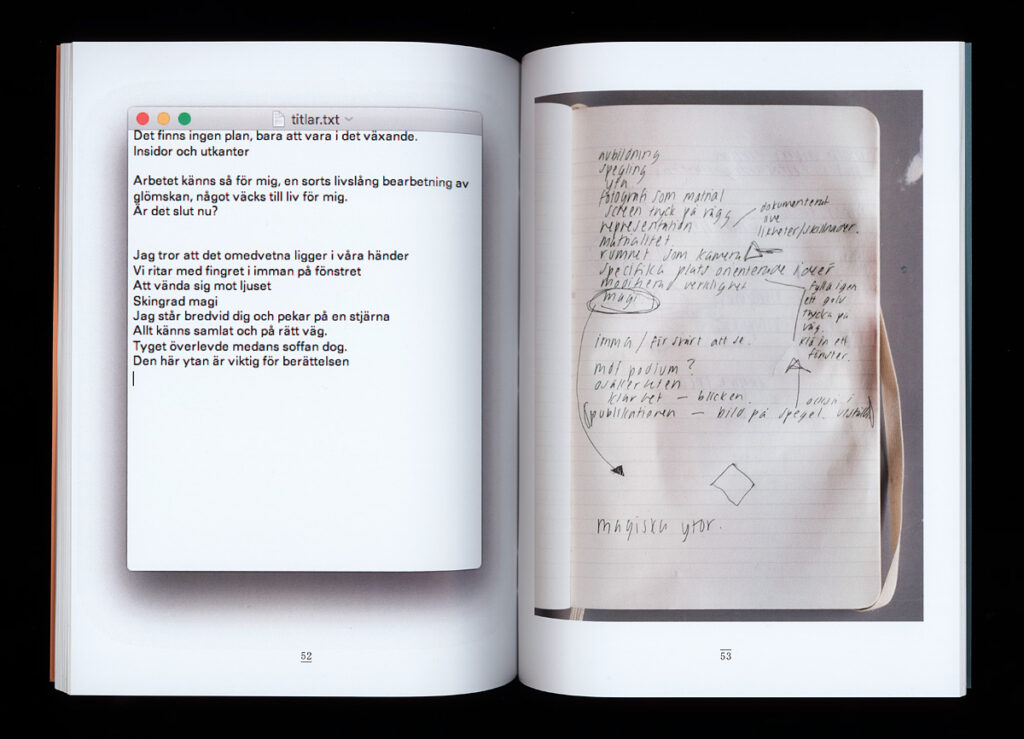 titlar.txt
Det finns ingen plan, bara att vara i det växande.
Insidor och utkanter
Arbetet känns så för mig, en sorts livslång bearbetning av
glömskan, något väcks till liv för mig.
Är det slut nu?
Jag tror att det omedvetna ligger i våra händer
Vi ritar med fingret i imman på fönstret
Att vända sig mot ljuset
Skingrad magi
Jag står bredvid dig och pekar på en stjärna
Allt känns samlat och på rätt väg.
Tyget överlevde medans soffan dog.
Den här ytan är viktig för berättelsen
52
avbildning
spegling
yta
fotografi som matrial
screen tryck på vägg
representation
matrialitet
rummet som kamera
specifika plats orienterade ideér
modifierad verklighet
magi
dokumenterat
live
likheter/skillnader.
fylla igen
ett golv
trycka på
väg.
klä in ett
fönster.
imma / för svårt att se.
mot podium?
osäkerheten
klarhet – blicken.
publikationen – bild på spegel.
också i
magiska ytor.
53